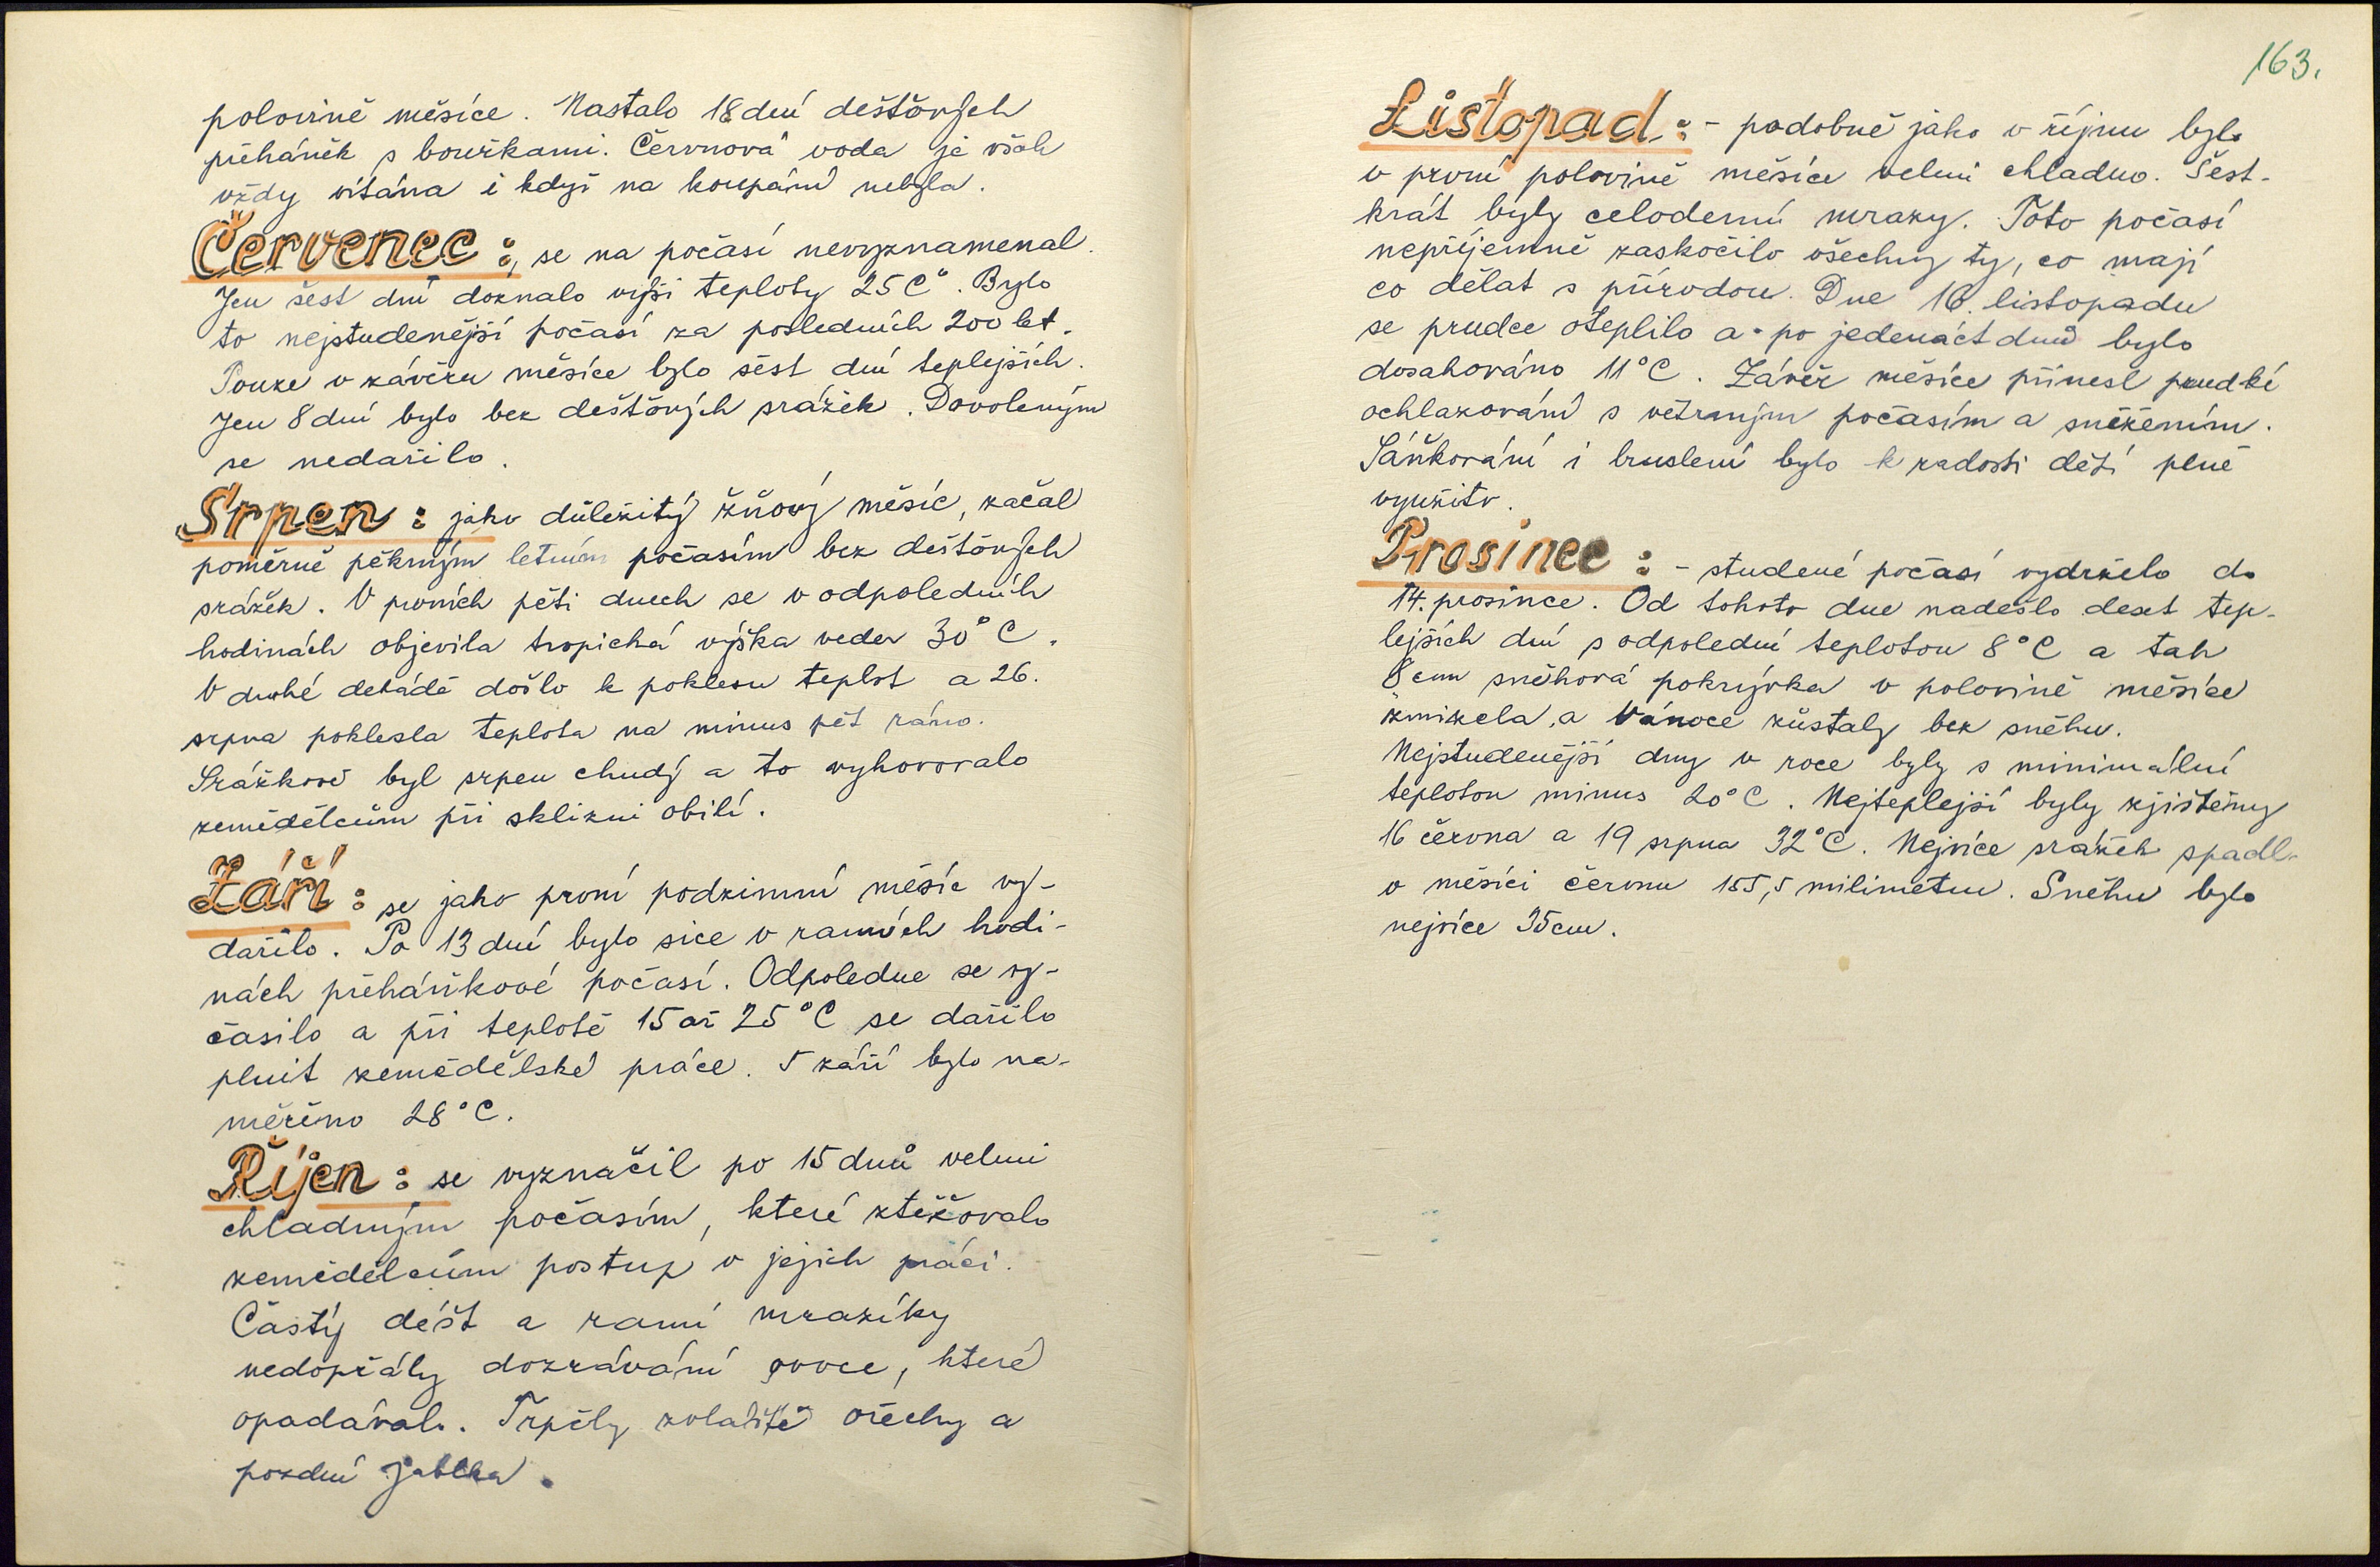 polovině měsíce. Nastalo 18 dní dešťových
přeháněk s bouřkami. Červnová voda je však
vždy vítána i když na koupání nebyla.
Červenec:, se na počasí nevyznamenal.
Jen šest dní doznalo výši teploty 25 C°. Bylo
to nejstudenější počasí za posledních 200 let.
Pouze v závěru měsíce bylo šest dní teplejších.
Jen 8 dní bylo bez dešťových srážek. Dovoleným
se nedařilo.
Srpen: jako důležitý žňový měsíc, začal
poměrně pěkným letním počasím bez dešťových
srážek. V prvních pěti dnech se v odpoledních
hodinách objevila tropická výška veder 30°C.
V druhé dekádě došlo k poklesu teplot a 26.
srpna poklesla teplota na minus pět ráno.
Srážkově byl srpen chudý a to vyhovovalo
zemědělcům při sklizni obilí.
Září: se jako první podzimní měsíc vy-
dařilo. Po 13 dní bylo sice v ranních hodi-
nách přeháňkové počasí. Odpoledne se vy-
časilo a při teplotě 15 až 25°C se dařilo
plnit zemědělské práce. 5 září bylo na-
měřeno 28°C.
Říjen: se vyznačil po 15 dnů velmi
chladným počasím, které ztěžovalo
zemědělcům postup v jejich práci.
Častý déšt a ranní mrazíky
nedopřály dozrávání ovoce, které
opadávalo. Trpěly zvláště ořechy a
pozdní jablka.
163.
Listopad: - podobně jako v říjnu bylo
v první polovině měsíce velmi chladno. Šest-
krát byly celodenní mrazy. Toto počasí
nepříjemně zaskočilo všechny ty, co mají
co dělat s přírodou. Dne 16. listopadu
se prudce oteplilo a po jedenáct dnů bylo
dosahováno 11°C. Závěr měsíce přinesl prudké
ochlazování s větrným počasím a sněžením.
Sáňkování i bruslení bylo k radosti dětí plně
využito.
Prosinec: - studené počasí vydrželo do
14. prosince. Od tohoto dne nadešlo deset tep-
lejších dní s odpolední teplotou 8°C a tak
8 cm sněhová pokrývka v polovině měsíce
zmizela, a Vánoce zůstaly bez sněhu.
Nejstudenější dny v roce byly s minimální
teplotou minus 20°C. Nejteplejší byly zjištěny
16 června a 19 srpna 32°C. Nejvíce srážek spadlo
v měsíci červnu 155,5 milimetru. Sněhu bylo
nejvíce 35cm.